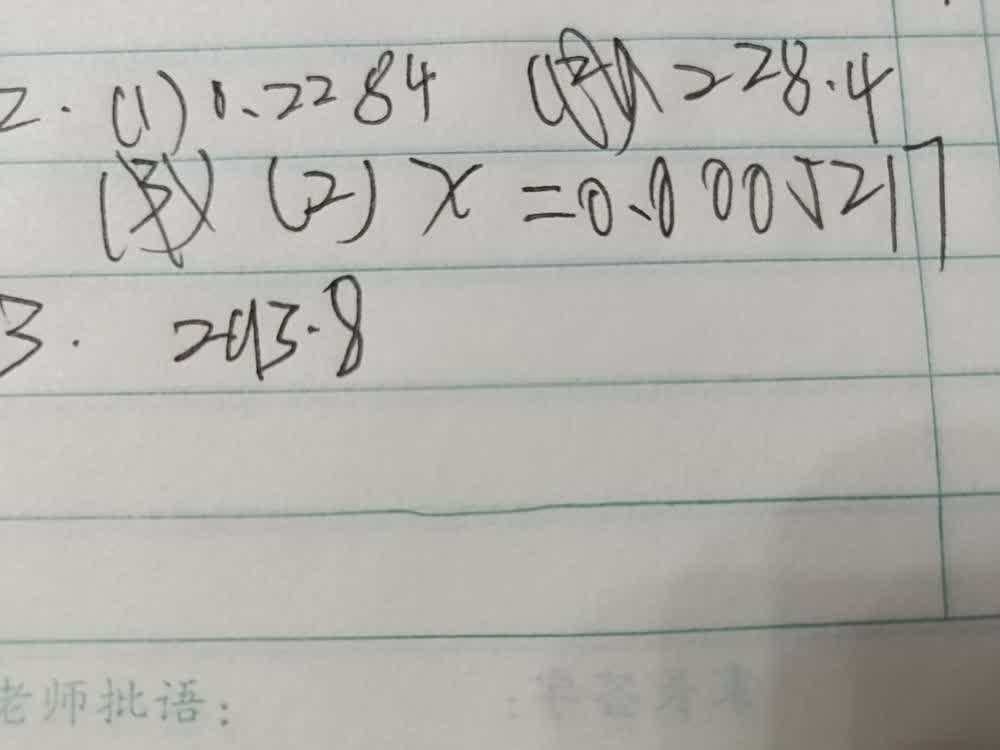 2. (1) 0.2284 228.4
(2) x = 0.0005217
3. 293.8
老师批语: